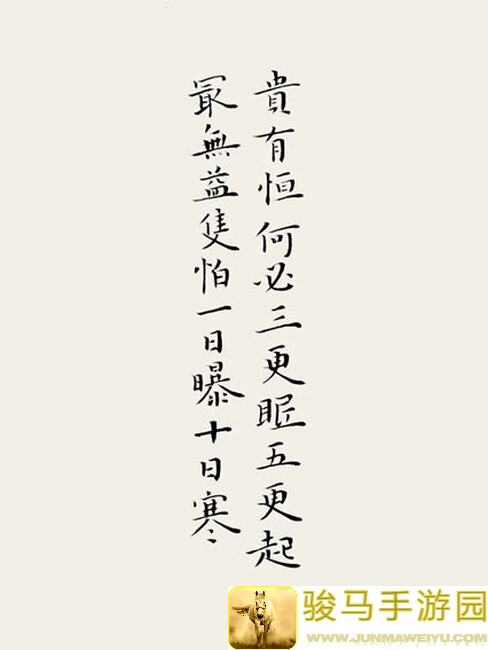 貴有恒何必三更眠五更起
冣無益隻怕一日曝十日寒
骏马手游园
WWW.JUNMAWEIYU.COM